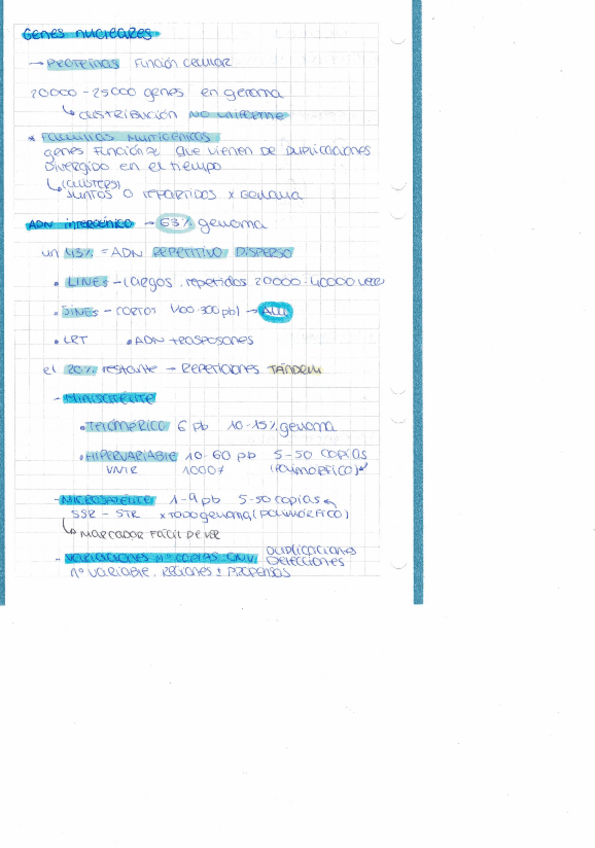 Genes nucleares
→ PROTEÍNAS Función celular
20000-25000 genes en genoma
↳ distribución no uniforme
* Familias multigénicas
genes función ≈ que vienen de duplicaciones
Divergido en el tiempo
↳ (clusters)
juntos o repartidos x genoma
ADN intergénico → 63% genoma
un 43% = ADN REPETITIVO DISPERSO
• LINEs - Largos, repetidos 20000-40000 veces
• SINEs - cortos (100-300 pb) → ALU
• LRT • ADN trasposones
el 20% restante → Repeticiones TÁNDEM
- Minisatélite
• Telomérico 6 pb 10-15% genoma
• HIPERVARIABLE 10-60 pb 5-50 copias
VNTR 1000 (Polimórfico)
- Microsatélite 1-9 pb 5-50 copias
SSR - STR x todo genoma (polimórfico)
↳ Marcador fácil de ver
- Variaciones nº copias CNV Duplicaciones
Delecciones
nº variable, Regiones ± propensas